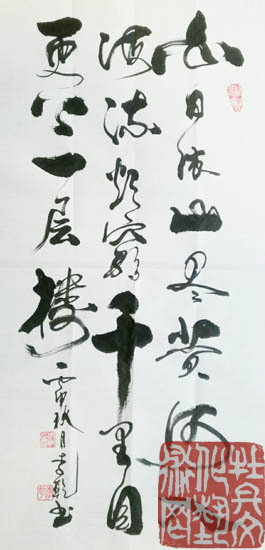 白日依山尽黄河入
海流欲穷千里目
更上一层楼
丙申秋月李乾书